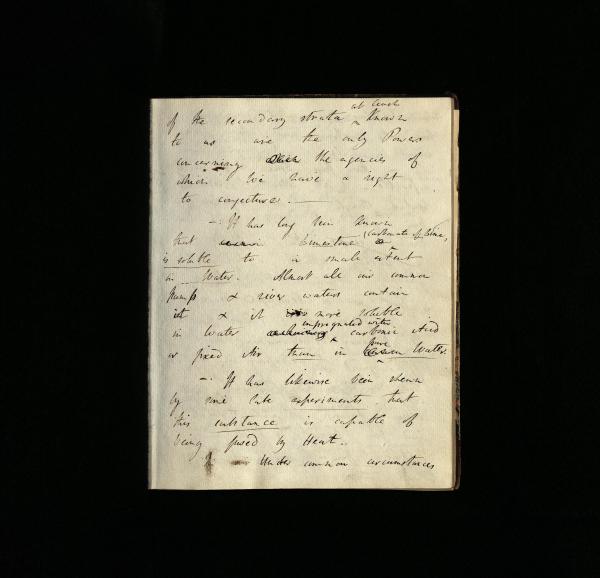 at least
of the secondary strata ^ known
to us are the only Powers
concerning which the agencies of
which We have a right
to conjecture. —
—: It has long been known
that Limestone (carbonate of Lime,
is soluble to a small extent
in Water. Almost all our common
pump & river waters contain
it & it is more soluble
impregnated with
in water carbonic Acid
or fixed Air than in pure Water.
—: It has likewise been shewn
by some late experiments that
this substance is capable of
being fused by Heat.
Under common circumstances